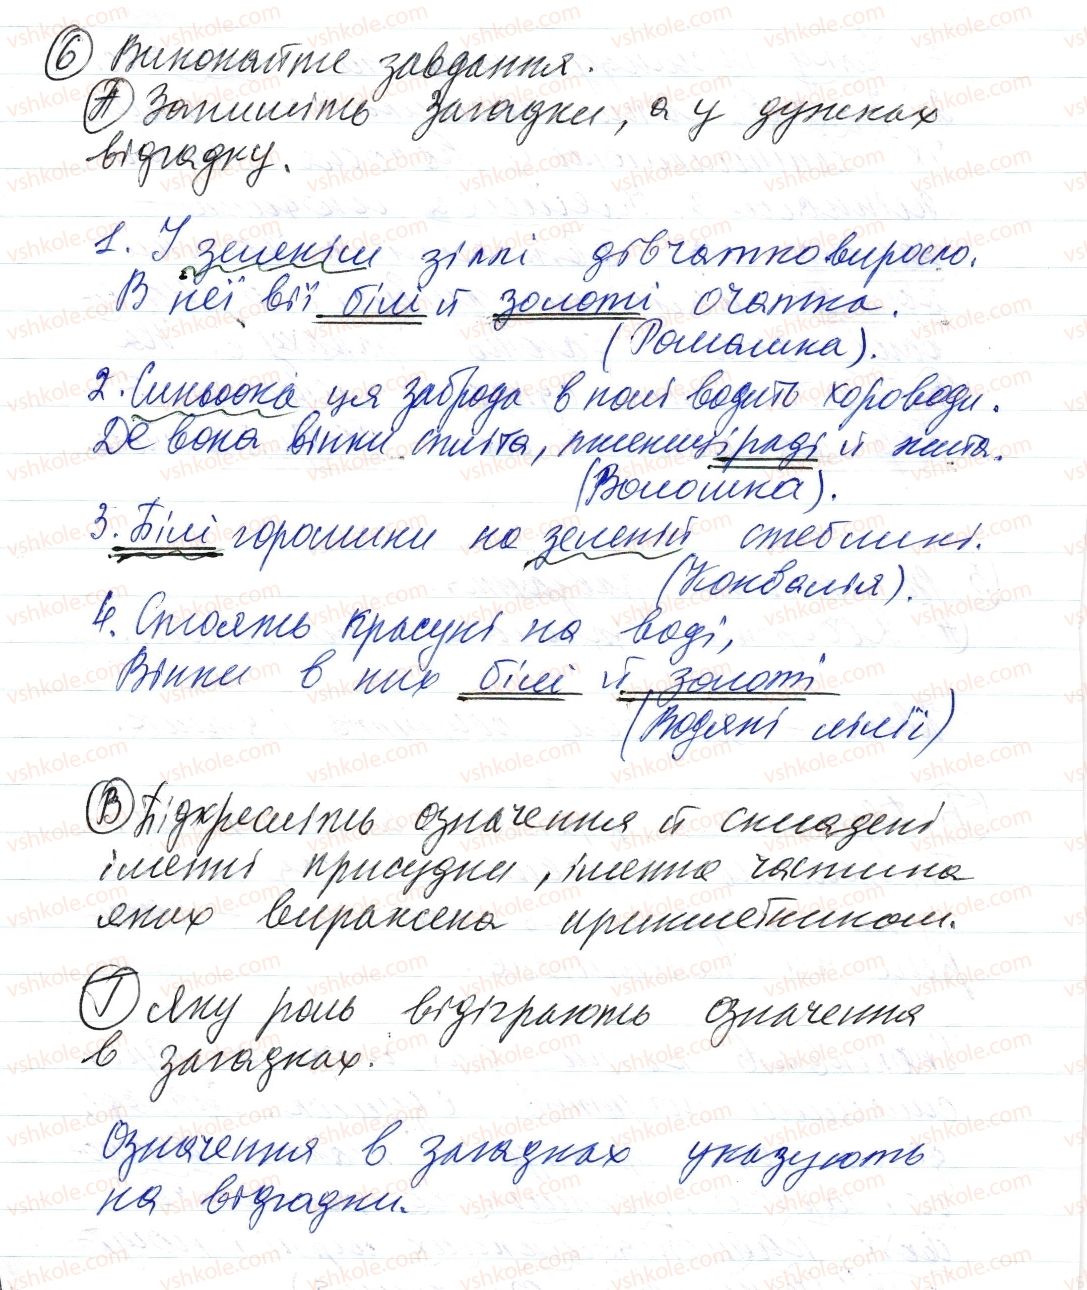 6 Виконайте завдання.
А Запишіть загадки, а у дужках
відгадку.
1. У зеленім зіллі дівчатко виросло.
В неї вії білі й золоті очатка.
(Ромашка).
2. Синьоока ця заброда в полі водить хороводи.
Де вона вінки спліта, пшениці раді й жита.
(Волошка).
3. Білі горошини на зеленій стеблині.
(Конвалія).
4. Стоять красуні на воді,
Вінки в них білі й золоті
(Водяні лілії)
В Підкресліть означення й складені
іменні присудки, іменна частина
яких виражена прикметником.
Г Яку роль відіграють означення
в загадках.
Означення в загадках указують
на відгадки.